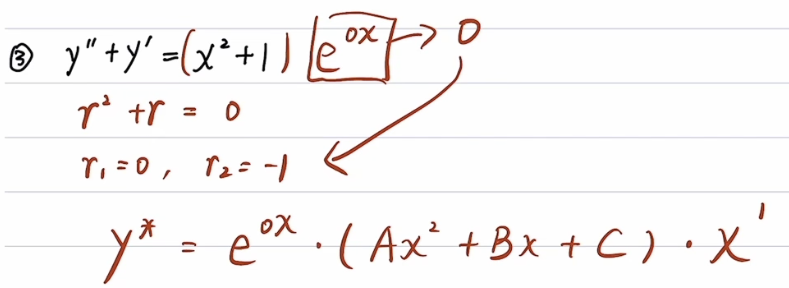 ③ y″ + y′ = (x² + 1) e^{0x} → 0
r² + r = 0
r₁ = 0 , r₂ = -1
y* = e^{0x} · (Ax² + Bx + C) · x¹